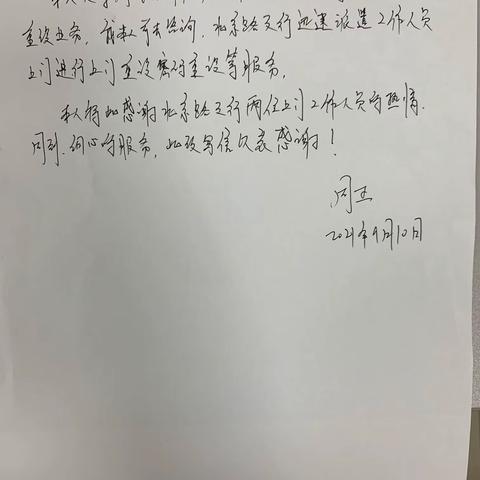 重设业务，前来人可去咨询，北京路支行迅速派遣工作人员
上门进行上门重设密码重设等服务。
本人特此感谢北京路支行两位上门工作人员的热情、
周到、细心的服务，此致写信以表感谢！
2021年9月10日